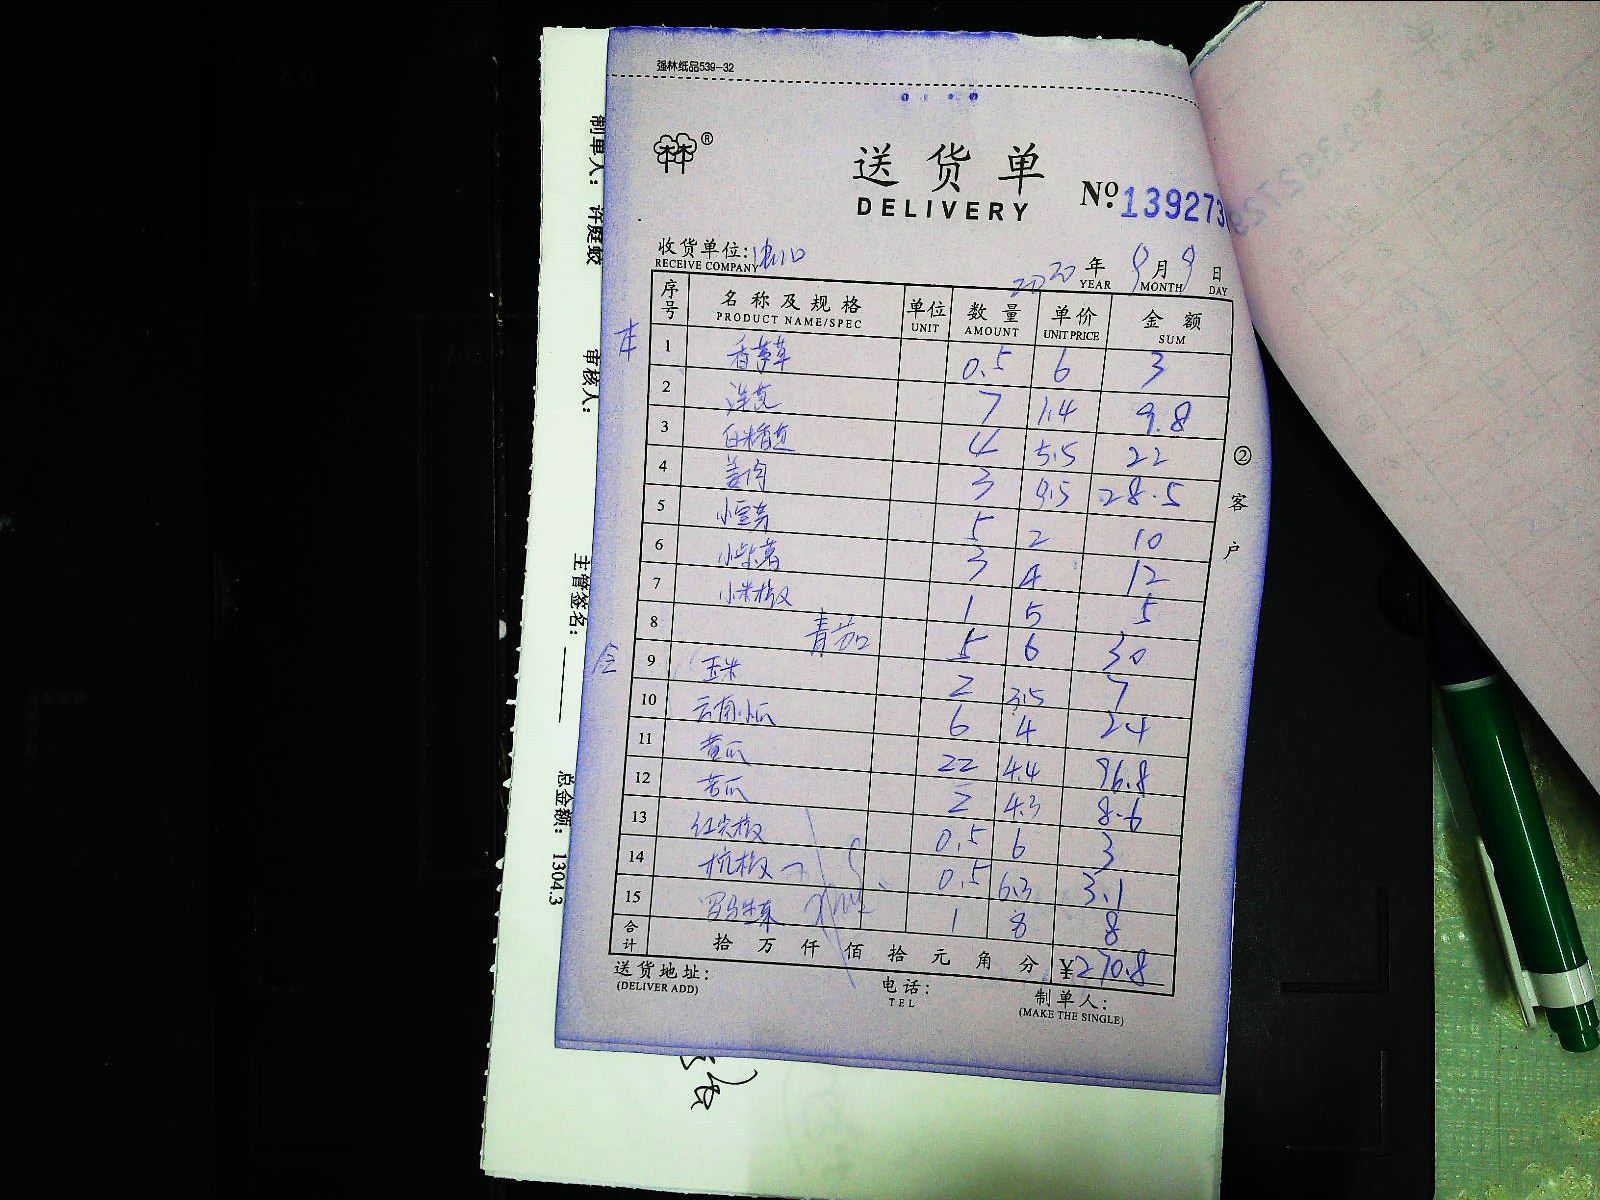 强林纸品539-32
送货单
DELIVERY
No. 139273
收货单位:
RECEIVE COMPANY
2020 年 9 月 9 日
YEAR MONTH DAY
序号 名称及规格 单位 数量 单价 金额
PRODUCT NAME/SPEC UNIT AMOUNT UNIT PRICE SUM
1 香茅草 0.5 6 3
2 洋葱 7 1.4 9.8
3 4 5.5 22
4 姜肉 3 9.5 28.5
5 小豆芽 5 2 10
6 小紫薯 3 4 12
7 小米椒 1 5 5
8 青茄 5 6 30
9 玉米 2 3.5 7
10 云南小瓜 6 4 24
11 黄瓜 22 4.4 96.8
12 苦瓜 2 4.3 8.6
13 红尖椒 0.5 6 3
14 杭椒 0.5 6.3 3.1
15 罗马生菜 1 8 8
合计 拾 万 仟 佰 拾 元 角 分 ¥270.8
送货地址:
(DELIVER ADD)
电话:
TEL
制单人:
(MAKE THE SINGLE)
② 客户
制单人: 许庭蛟
审核人:
主管签名:
总金额: 1304.3